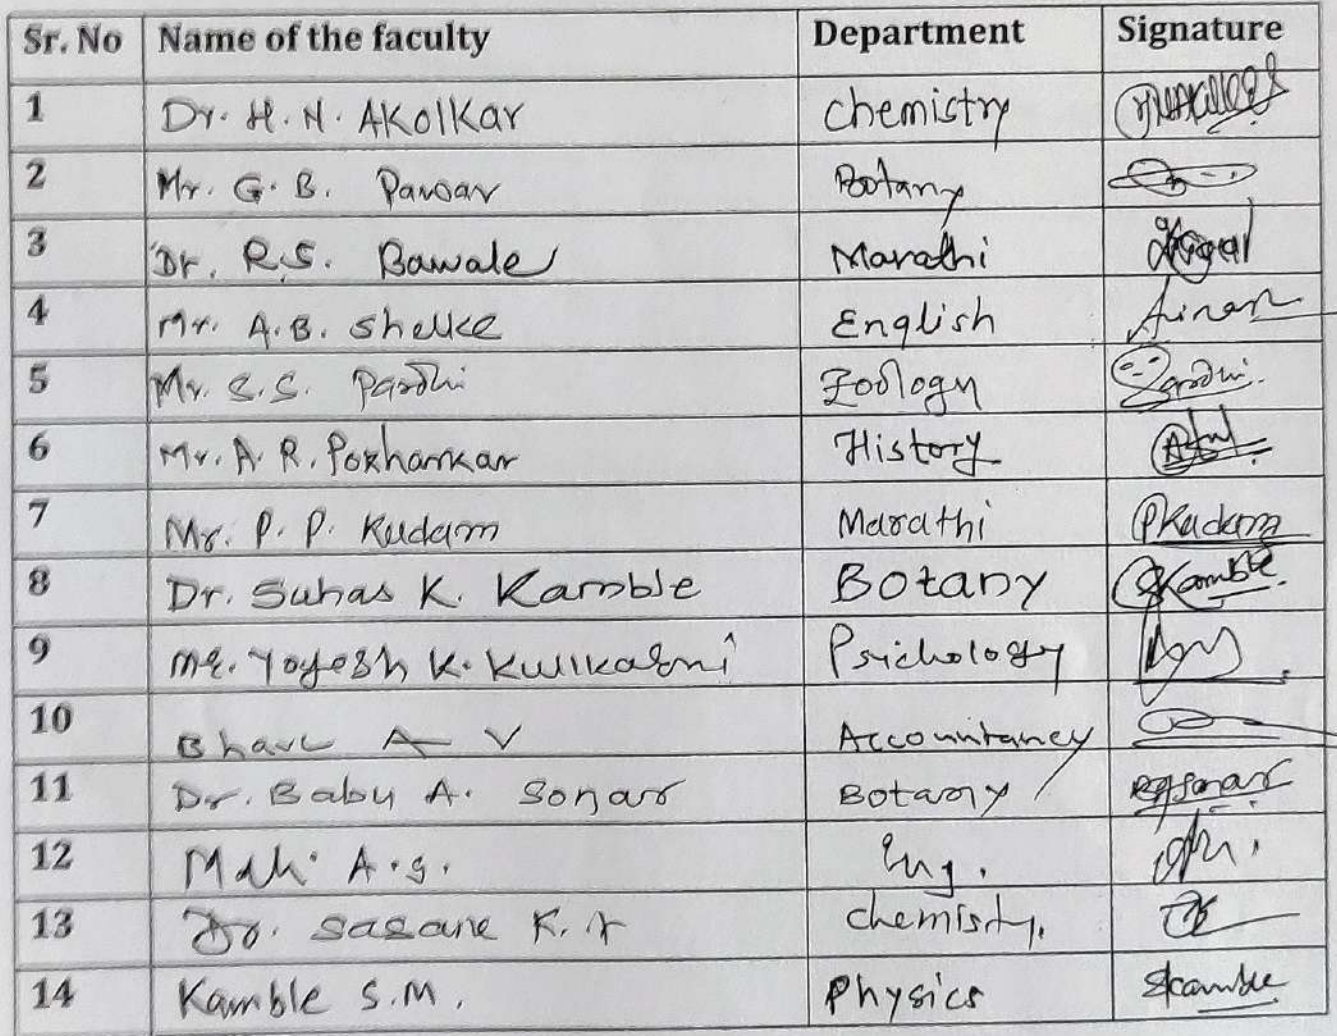 Sr. No Name of the faculty Department Signature
1 Dr. H. N. Akolkar Chemistry
2 Mr. G. B. Pawar Botany
3 Dr. R.S. Bawale Marathi
4 Mr. A.B. Shelke English
5 Mr. S.S. Pardhi Zoology
6 Mr. A. R. Pokharkar History
7 Mr. P. P. Kadam Marathi PKadam
8 Dr. Suhas K. Kamble Botany SKamble
9 Mr. Yogesh K. Kulkarni Psichology
10 Bhave A V Accountancy
11 Dr. Babu A. Sonar Botany
12 A.S. Eng.
13 Dr. Sasane K. Chemisty.
14 Kamble S.M. Physics Skamble